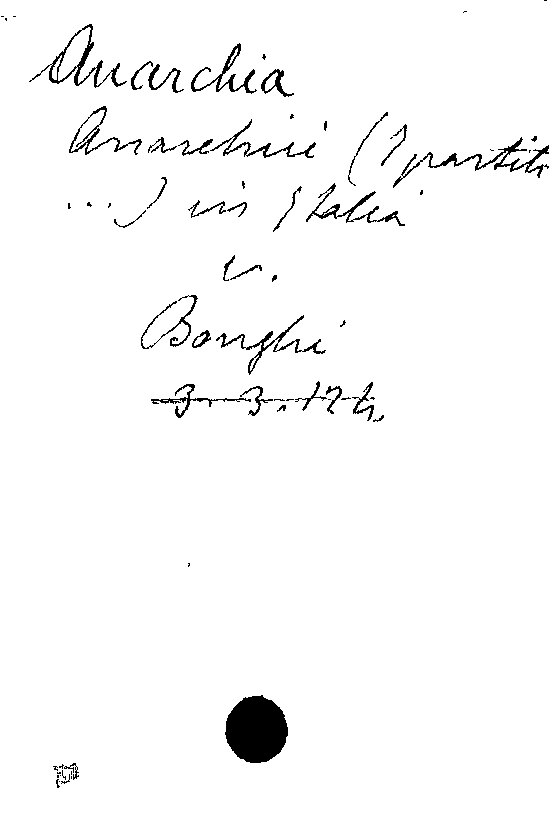 Anarchia
Anarchici (I partiti
...) in Italia
v.
Bonghi
3. 3. 124.